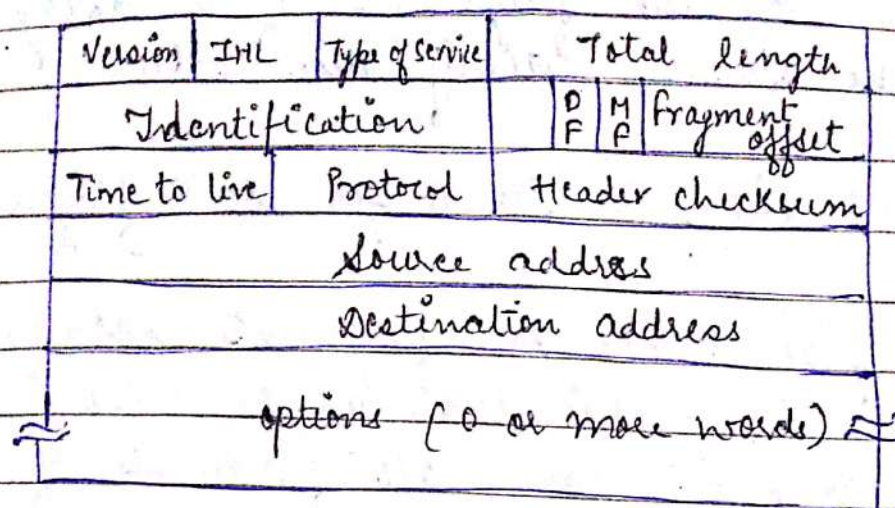 Version IHL Type of Service Total length
Identification DF MF fragment offset
Time to live Protocol Header checksum
Source address
Destination address
options (0 or more words)